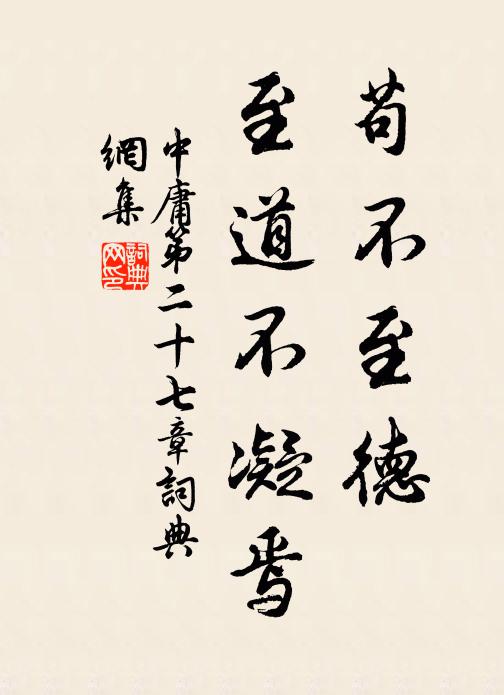 苟不至德
至道不凝焉
中庸第二十七章詞典
網集
詞典
网印